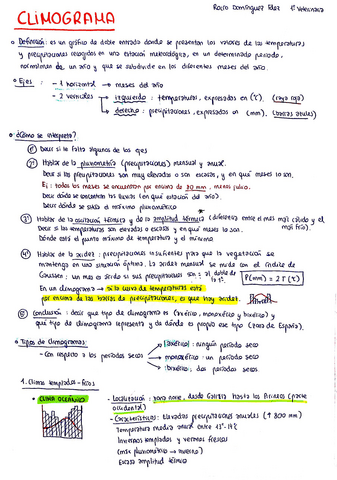 CLIMOGRAMA
Rocío Domínguez 1º Veterinaria
Definición: es un gráfico de doble entrada donde se presentan los valores de las temperaturas
y precipitaciones recogidas en una estación meteorológica, en un determinado periodo,
normalmente de un año y que se subdivide en los diferentes meses del año.
Ejes: - 1 horizontal → meses del año
- 2 verticales → izquierdo: temperaturas, expresadas en (ºC). (raya roja)
derecho: precipitaciones, expresadas en (mm). (barras azules)
¿Cómo se interpreta?
1º Decir si le falta alguno de los ejes
2º Hablar de la pluviometría (precipitaciones) mensual y anual.
Decir si las precipitaciones son muy elevadas o son escasas, y en qué meses lo son.
Ej: todos los meses se encuentran por encima de 30 mm, menos julio.
Decir donde se encuentran las lluvias (en qué estación del año).
Decir donde se sitúa el máximo pluviométrico
3º Hablar de la oscilación térmica y de la amplitud térmica (diferencia entre el mes más cálido y el
más frío).
Decir si las temperaturas son elevadas o escasas y en qué meses lo son.
Dónde está el punto máximo de temperatura y el mínimo.
4º Hablar de la aridez: precipitaciones insuficientes para que la vegetación se
mantenga en una situación óptima. La aridez mensual se mide con el índice de
Gaussen: un mes es árido si sus precipitaciones son = al doble de
la Tª.
P(mm) = 2T (ºC)
En un climograma → si la curva de temperaturas está
por encima de las barras de precipitaciones, es que hay aridez.
5º Conclusión: decir que tipo de climograma es (xérico, monoxérico y bixérico) y
qué tipo de climograma representa y da dónde es propio ese tipo (zona de España).
Tipos de Climogramas:
- Con respecto a los periodos secos
: ningún periodo seco
monoxérico: un periodo seco
bixérico: dos periodos secos
1. Climas templados-fríos
CLIMA OCEÁNICO
- Localización: zona norte, desde Galicia hasta los Pirineos (parte
occidental)
- Características: Elevadas precipitaciones anuales (↑ 800 mm)
Temperatura media anual entre
Inviernos templados y veranos frescos
(máx pluviométrico → invierno)
Escasa amplitud térmica